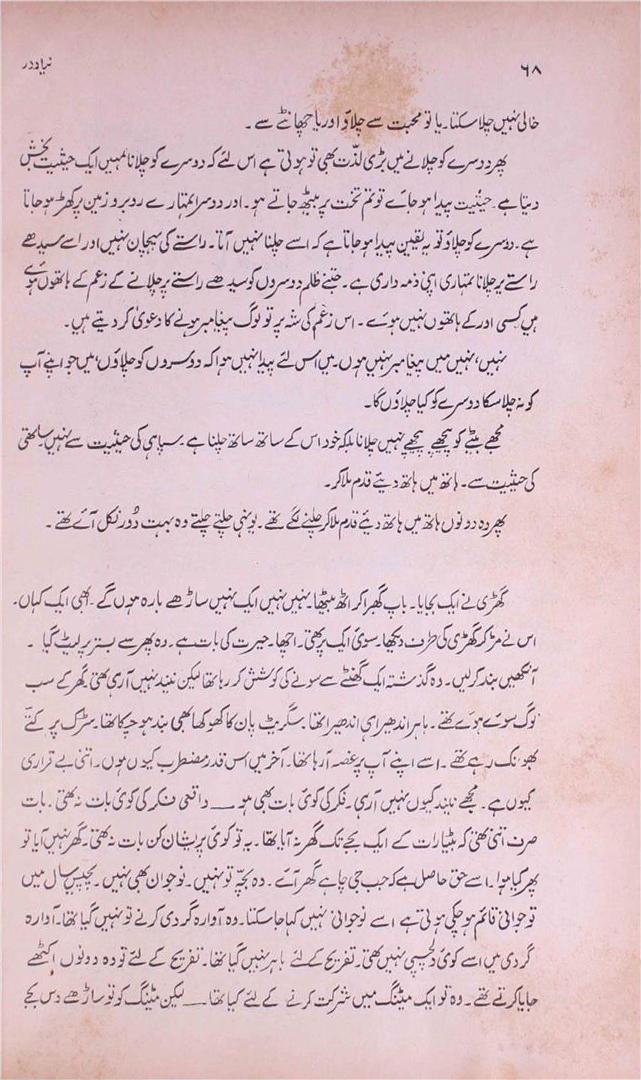 ۶۸ نیا دور
خالی نہیں چلا سکتا۔ یا تو محبت سے چلاؤ اور یا چھانٹے سے۔
پھر دوسرے کو چلانے میں بڑی لذّت بھی تو ہوتی ہے اس لئے کہ دوسرے کو چلانا تمہیں ایک حیثیت بخش
دیتا ہے۔ حیثیت پیدا ہو جائے تو تم تخت پر بیٹھ جاتے ہو۔ اور دوسرا تمہارے روبرو زمین پر کھڑا ہو جاتا
ہے۔ دوسرے کو چلاؤ تو یہ یقین پیدا ہو جاتا ہے کہ اسے چلنا نہیں آتا۔ راستے کی پہچان نہیں اور اسے سیدھے
راستے پر چلانا تمہاری اپنی ذمہ داری ہے۔ جتنے ظلم دوسروں کو سیدھے راستے پر چلانے کے زعم کے ہاتھوں ہوئے
ہیں کسی اور کے ہاتھوں نہیں ہوئے۔ اس زعم کی شہ پر تو لوگ پیغامبر ہونے کا دعویٰ کر دیتے ہیں۔
نہیں، نہیں میں پیغامبر نہیں ہوں۔ میں اس لئے پیدا نہیں ہوا کہ دوسروں کو چلاؤں، میں جو اپنے آپ
کو نہ چلا سکا دوسرے کو کیا چلاؤں گا۔
مجھے بیٹے کو پیچھے پیچھے نہیں چلانا بلکہ خود اس کے ساتھ ساتھ چلنا ہے۔ سپاہی کی حیثیت سے نہیں ساتھی
کی حیثیت سے۔ ہاتھ میں ہاتھ دیئے قدم ملا کر۔
پھر وہ دونوں ہاتھ میں ہاتھ دیئے قدم ملا کر چلنے لگے تھے۔ یونہی چلتے چلتے وہ بہت دُور نکل آئے تھے۔
گھڑی نے ایک بجایا۔ باپ گھبرا کر اٹھ بیٹھا۔ نہیں نہیں ایک نہیں ساڑھے بارہ ہوں گے۔ ابھی ایک کہاں۔
اس نے مڑ کر گھڑی کی طرف دیکھا۔ سوئی ایک پر تھی۔ اچھا۔ حیرت کی بات ہے۔ وہ پھر سے بستر پر لیٹ گیا۔
آنکھیں بند کر لیں۔ وہ گذشتہ ایک گھنٹے سے سونے کی کوشش کر رہا تھا لیکن نیند نہیں آ رہی تھی۔ گھر کے سب
لوگ سوئے ہوئے تھے۔ باہر اندھیرا ہی اندھیرا تھا۔ سگریٹ پان کا کھوکھا بھی بند ہو چکا تھا۔ سڑک پر کتے
بھونک رہے تھے۔ اسے اپنے آپ پر غصہ آ رہا تھا۔ آخر میں اس قدر مضطرب کیوں ہوں۔ اتنی بے قراری
کیوں ہے۔ مجھے نیند کیوں نہیں آ رہی۔ فکر کی کوئی بات بھی ہو ـــ واقعی فکر کی کوئی بات نہ تھی۔ بات
صرف اتنی تھی کہ بٹیارات کے ایک بجے تک گھر نہ آیا تھا۔ یہ تو کوئی پریشان کن بات نہ تھی۔ گھر نہیں آیا تو
پھر کیا ہوا۔ اسے حق حاصل ہے کہ جب جی چاہے گھر آئے۔ وہ بچّہ تو نہیں۔ نوجوان بھی نہیں۔ پچیس سال میں
تو جوانی قائم ہو چکی ہوتی ہے اسے نوجوانی نہیں کہا جا سکتا۔ وہ آوارہ گردی کرنے تو نہیں گیا تھا۔ آوارہ
گردی میں اسے کوئی دلچسپی نہیں تھی۔ تفریح کے لئے باہر نہیں گیا تھا۔ تفریح کے لئے تو وہ دونوں اکٹھے
جایا کرتے تھے۔ وہ تو ایک مٹنگ میں شرکت کرنے کے لئے گیا تھا ـــ لیکن مٹنگ کو تو ساڑھے دس بجے